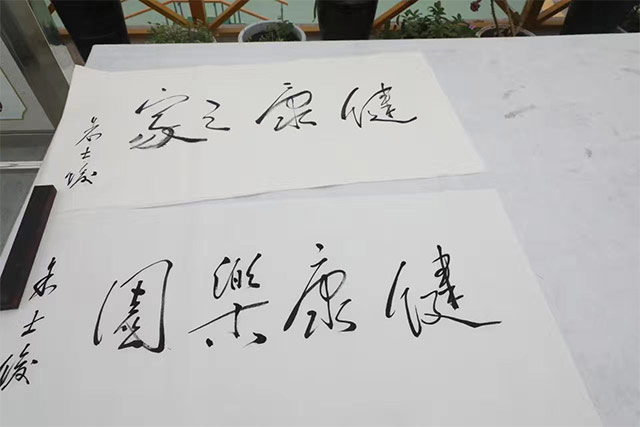 健康之家
朱士峻
健康樂園
朱士峻